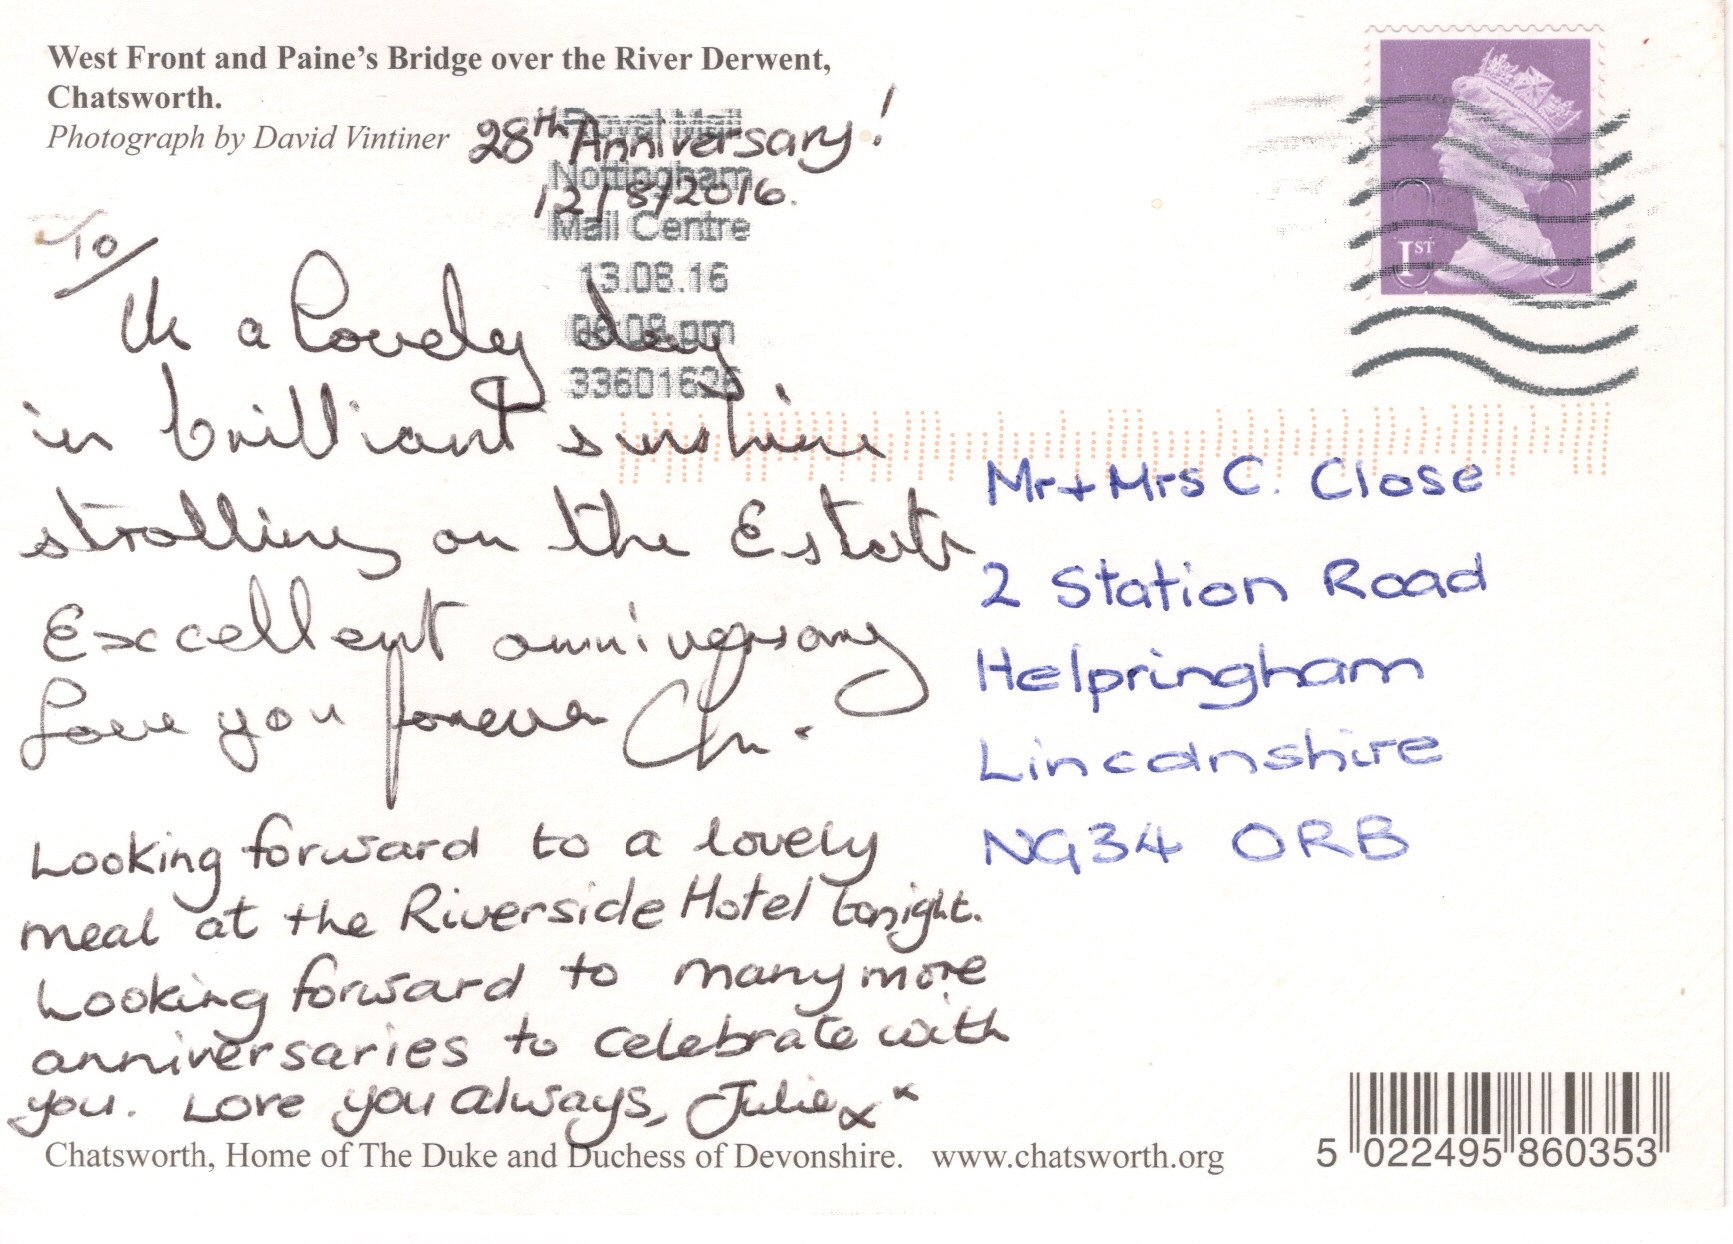 West Front and Paine's Bridge over the River Derwent,
Chatsworth.
Photograph by David Vintiner
28th Anniversary!
12/8/2016.
Royal Mail
Nottingham
Mail Centre
13.08.16
06:08 pm
3360163
1ST
To
Us a lovely day
in brilliant sunshine
strolling on the Estate
Excellent anniversary
Love you forever
Looking forward to a lovely
meal at the Riverside Hotel tonight.
Looking forward to many more
anniversaries to celebrate with
you. Love you always, Julie x x
Mr + Mrs C. Close
2 Station Road
Helpringham
Lincolnshire
NG34 0RB
Chatsworth, Home of The Duke and Duchess of Devonshire. www.chatsworth.org
5 022495 860353